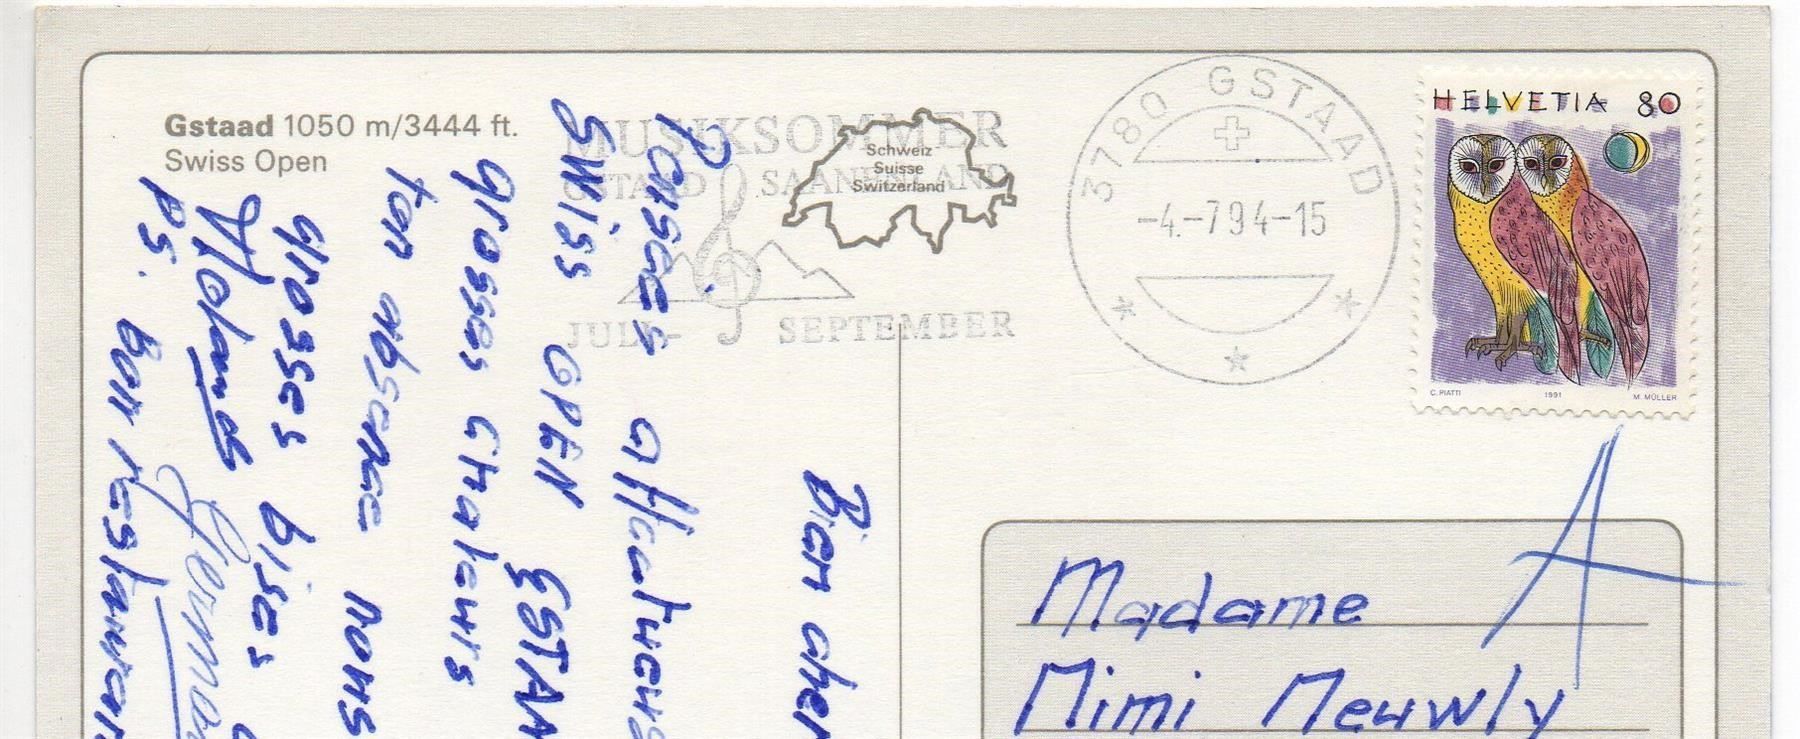 Gstaad 1050 m/3444 ft.
Swiss Open
MUSIKSOMMER
GSTAAD SAANENLAND
JULI - SEPTEMBER
Schweiz
Suisse
Switzerland
3780 GSTAAD
-4.-794-15
HELVETIA 80
C. PIATTI 1991 M. MÜLLER
A
Madame
Mimi Meuwly
Bien cher
Pensées affectueus
SWiss OPEN GSTAA
grosses chaleurs
ton absence nous
grosses bises
PS. bon restauran